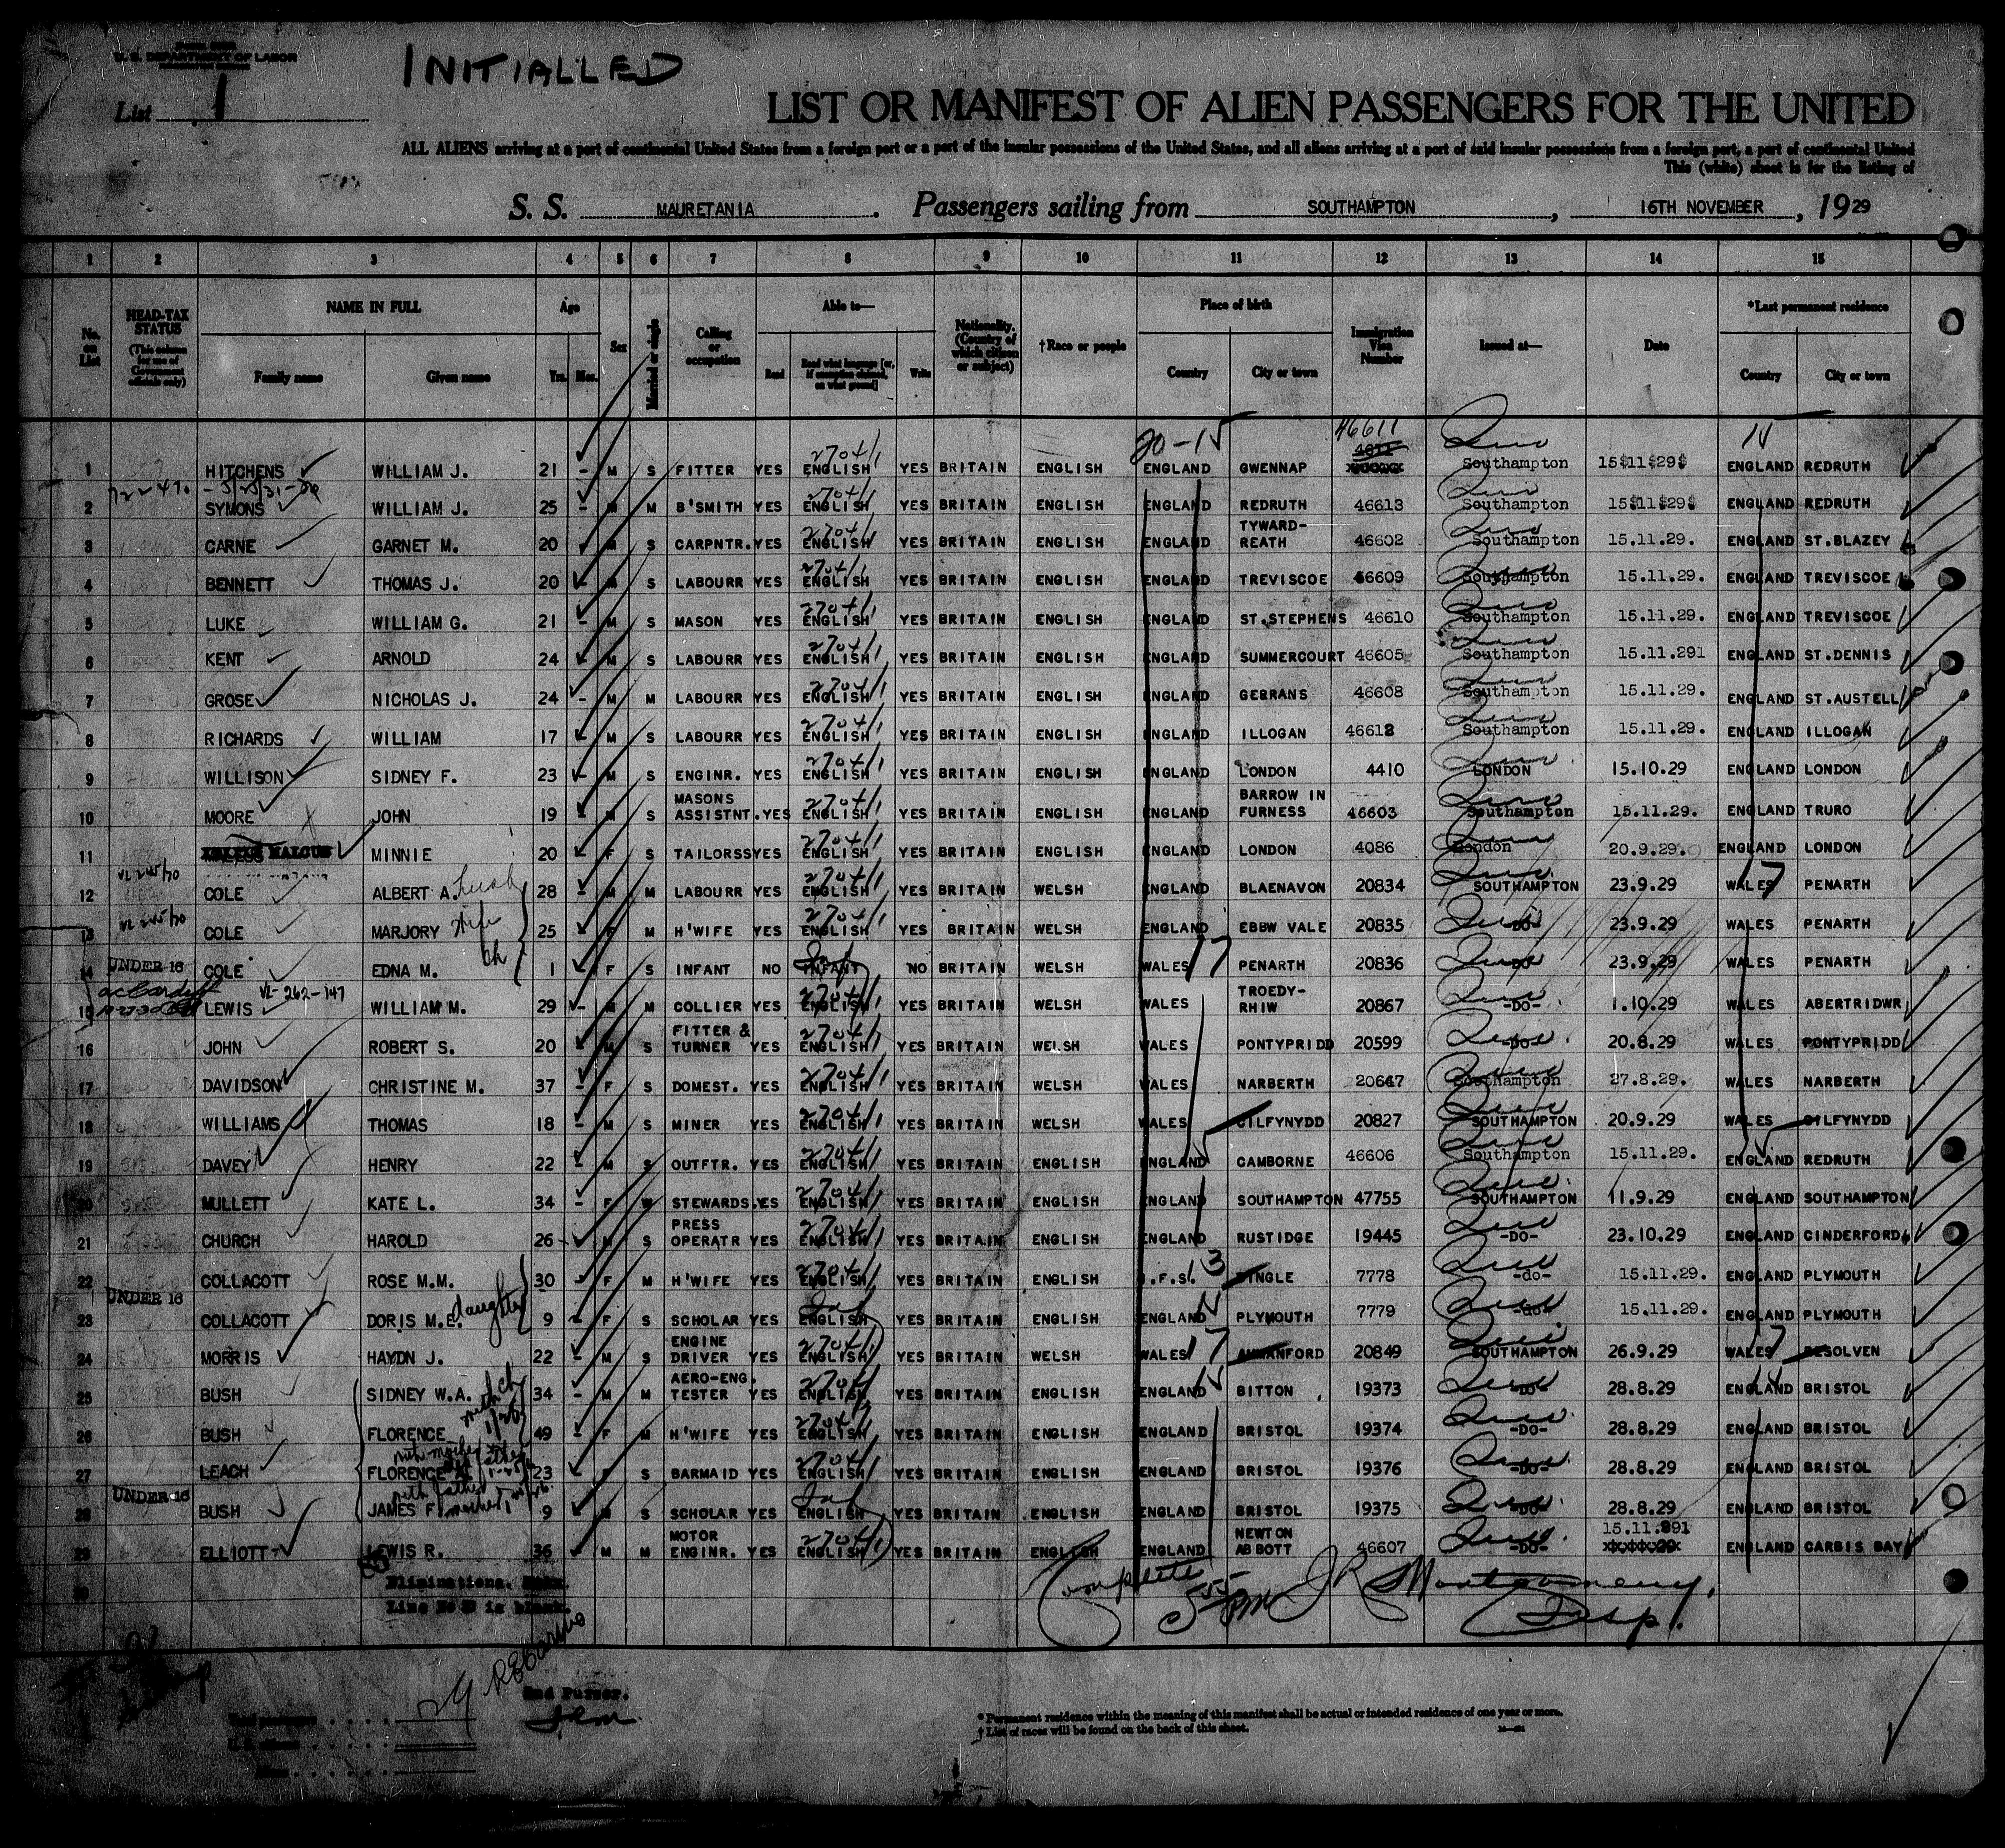 U. S. DEPARTMENT OF LABOR
INITIALLED
List 1
LIST OR MANIFEST OF ALIEN PASSENGERS FOR THE UNITED
ALL ALIENS arriving at a port of continental United States from a foreign port or a port of the insular possessions of the United States, and all aliens arriving at a port of said insular possessions from a foreign port, a port of continental United
This (white) sheet is for the listing of
S. S. MAURETANIA. Passengers sailing from SOUTHAMPTON, 16TH NOVEMBER, 1929
1 2 3 4 5 6 7 8 9 10 11 12 13 14 15
No. on List HEAD-TAX STATUS (This column for use of Government officials only) NAME IN FULL Family name Given name Age Yrs. Mos. Sex Married or single Calling or occupation Able to— Read Read what language [or, if exemption claimed, on what ground] Write Nationality. (Country of which citizen or subject) †Race or people Place of birth Country City or town Immigration Visa Number Issued at— Date *Last permanent residence Country City or town
20-15 46611 15
1 HITCHENS WILLIAM J. 21 - M S FITTER YES ENGLISH YES BRITAIN ENGLISH ENGLAND GWENNAP Southampton 15$11$29$ ENGLAND REDRUTH
2 SYMONS WILLIAM J. 25 - M M B'SMITH YES ENGLISH YES BRITAIN ENGLISH ENGLAND REDRUTH 46613 Southampton 15$11$29$ ENGLAND REDRUTH
3 CARNE GARNET M. 20 M S CARPNTR. YES ENGLISH YES BRITAIN ENGLISH ENGLAND TYWARD-REATH 46602 Southampton 15.11.29. ENGLAND ST.BLAZEY
4 BENNETT THOMAS J. 20 - M S LABOURR YES ENGLISH YES BRITAIN ENGLISH ENGLAND TREVISCOE 46609 Southampton 15.11.29. ENGLAND TREVISCOE
5 LUKE WILLIAM G. 21 - M S MASON YES ENGLISH YES BRITAIN ENGLISH ENGLAND ST.STEPHENS 46610 Southampton 15.11.29. ENGLAND TREVISCOE
6 KENT ARNOLD 24 - M S LABOURR YES ENGLISH YES BRITAIN ENGLISH ENGLAND SUMMERCOURT 46605 Southampton 15.11.291 ENGLAND ST.DENNIS
7 GROSE NICHOLAS J. 24 - M M LABOURR YES ENGLISH YES BRITAIN ENGLISH ENGLAND GERRANS 46608 Southampton 15.11.29. ENGLAND ST.AUSTELL
8 RICHARDS WILLIAM 17 - M S LABOURR YES ENGLISH YES BRITAIN ENGLISH ENGLAND ILLOGAN 46612 Southampton 15.11.29. ENGLAND ILLOGAN
9 WILLISON SIDNEY F. 23 - M S ENGINR. YES ENGLISH YES BRITAIN ENGLISH ENGLAND LONDON 4410 LONDON 15.10.29 ENGLAND LONDON
10 MOORE JOHN 19 - M S MASONS ASSISTNT. YES ENGLISH YES BRITAIN ENGLISH ENGLAND BARROW IN FURNESS 46603 Southampton 15.11.29. ENGLAND TRURO
11 MINNIE 20 - F S TAILORSS YES ENGLISH YES BRITAIN ENGLISH ENGLAND LONDON 4086 London 20.9.29. ENGLAND LONDON
12 COLE ALBERT A. 28 - M M LABOURR YES ENGLISH YES BRITAIN WELSH ENGLAND BLAENAVON 20834 SOUTHAMPTON 23.9.29 WALES 17 PENARTH
13 COLE MARJORY wife 25 - F M H'WIFE YES ENGLISH YES BRITAIN WELSH ENGLAND EBBW VALE 20835 -DO- 23.9.29 WALES PENARTH
14 UNDER 16 COLE EDNA M. ch 1 - F S INFANT NO INFANT NO BRITAIN WELSH WALES 17 PENARTH 20836 -DO- 23.9.29 WALES PENARTH
15 LEWIS VL-262-147 WILLIAM M. 29 - M M COLLIER YES ENGLISH YES BRITAIN WELSH WALES TROEDY-RHIW 20867 -DO- 1.10.29 WALES ABERTRIDWR
16 JOHN ROBERT S. 20 - M S FITTER & TURNER YES ENGLISH YES BRITAIN WELSH WALES PONTYPRIDD 20599 -DO- 20.8.29 WALES PONTYPRIDD
17 DAVIDSON CHRISTINE M. 37 - F S DOMEST. YES ENGLISH YES BRITAIN WELSH WALES NARBERTH 20647 Southampton 27.8.29. WALES NARBERTH
18 WILLIAMS THOMAS 18 - M S MINER YES ENGLISH YES BRITAIN WELSH WALES CILFYNYDD 20827 SOUTHAMPTON 20.9.29 WALES CILFYNYDD
19 DAVEY HENRY 22 - M S OUTFTR. YES ENGLISH YES BRITAIN ENGLISH ENGLAND CAMBORNE 46606 Southampton 15.11.29. ENGLAND REDRUTH
20 MULLETT KATE L. 34 - F W STEWARDS. YES ENGLISH YES BRITAIN ENGLISH ENGLAND SOUTHAMPTON 47755 SOUTHAMPTON 11.9.29 ENGLAND SOUTHAMPTON
21 CHURCH HAROLD 26 - M S PRESS OPERATR YES ENGLISH YES BRITAIN ENGLISH ENGLAND RUSTIDGE 19445 -DO- 23.10.29 ENGLAND CINDERFORD
22 COLLACOTT ROSE M.M. 30 - F M H'WIFE YES ENGLISH YES BRITAIN ENGLISH I.F.S. 13 DINGLE 7778 -do- 15.11.29. ENGLAND PLYMOUTH
23 UNDER 16 COLLACOTT DORIS M.E. daughter 9 - F S SCHOLAR YES ENGLISH YES BRITAIN ENGLISH ENGLAND PLYMOUTH 7779 -do- 15.11.29. ENGLAND PLYMOUTH
24 MORRIS HAYDN J. 22 - M S ENGINE DRIVER YES ENGLISH YES BRITAIN WELSH WALES 17 AMMANFORD 20849 SOUTHAMPTON 26.9.29 WALES 17 RESOLVEN
25 BUSH SIDNEY W.A. 34 - M M AERO-ENG. TESTER YES ENGLISH YES BRITAIN ENGLISH ENGLAND BITTON 19373 -DO- 28.8.29 ENGLAND BRISTOL
26 BUSH FLORENCE 49 - F M H'WIFE YES ENGLISH YES BRITAIN ENGLISH ENGLAND BRISTOL 19374 -DO- 28.8.29 ENGLAND BRISTOL
27 LEACH FLORENCE 23 F S BARMAID YES ENGLISH YES BRITAIN ENGLISH ENGLAND BRISTOL 19376 -DO- 28.8.29 ENGLAND BRISTOL
28 UNDER 16 BUSH JAMES F. 9 - M S SCHOLAR YES ENGLISH YES BRITAIN ENGLISH ENGLAND BRISTOL 19375 -DO- 28.8.29 ENGLAND BRISTOL
29 ELLIOTT LEWIS R. 36 M M MOTOR ENGINR. YES ENGLISH YES BRITAIN ENGLISH ENGLAND NEWTON ABBOTT 46607 -DO- 15.11.291 ENGLAND CARBIS BAY
30 Eliminations.
Line No 30 is blank.
Complete 5 PM J R Montgomery, Insp.
2nd Purser.
* Permanent residence within the meaning of this manifest shall be actual or intended residence of one year or more.
† List of races will be found on the back of this sheet.